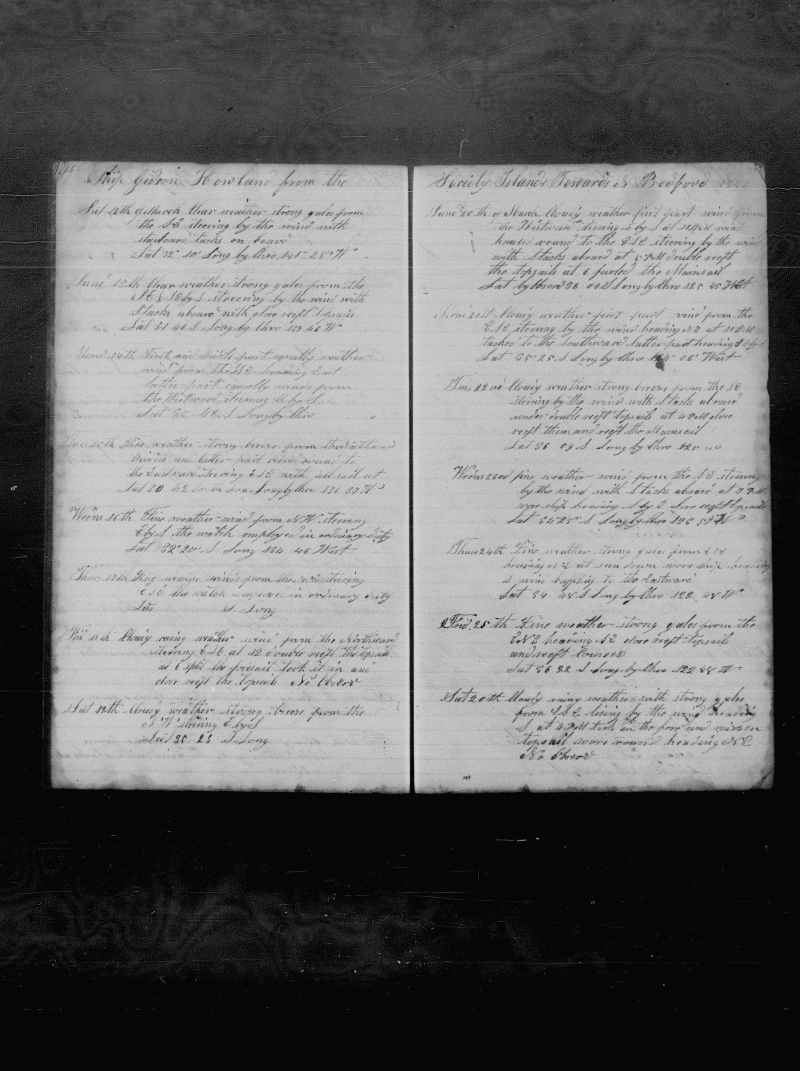 Ship Gideon Howland from the
Sat 12th of March Clear weather strong gales from
the SE steering by the wind with
starboard tacks on board
Lat 32° 10' Long by Chro 141° 28' W
Sund 13th Clear weather strong gales from the
steering by the wind with
S tacks aboard with close reeft topsails
Lat 33 46 S Long by Chro 139 46 W
Mond 14th First and middle part squally weather
wind from the SE heading East
latter part squally winds from
the Westward steering E by S
Lat 32 48 S Long by Chro
15th Fine weather strong breeze from the Northward
latter part veered round to
the Eastward steering ESE with all sail set
Lat 30 42 Long by Chro 136 37 W
Wedns 16th Fine weather wind from NW steering
E by S the watch employed in ordinary duty
Lat 32° 20' S Long 134 46 West
Thurs 17th Fine weather winds from the steering
ESE the watch employed in ordinary duty
Lat S Long
Fri 18th Cloudy rainy weather wind from the Northward
steering ESE at 12 double reeft the topsails
at 6 split the foresail took it in and
close reeft the topsails No Observ
Sat 19th Cloudy weather strong breeze from the
SW steering E by S
Lat 35 23 S Long
Society Islands Towards N Bedford
Sund 20th of March Cloudy weather first part wind from
the Westward steering E by S at 11 AM wind
hauled round to the ESE steering by the wind
with S tacks aboard at 5 PM double reeft
the topsails at 6 furled the Mainsail
Lat by Observ 36 02 S Long by Chro 125 45 West
Mon 21st Cloudy weather first part wind from the
ESE steering by the wind heading NE at 11 AM
tacked to the Southward latter part heading S by
Lat 35° 25 S Long by Chro 124° 06' West
Tues 22nd Cloudy weather strong breeze from the SE
steering by the wind with S tacks aboard
under double reeft topsails at 4 PM close
reeft them and reeft the Mainsail
Lat 36 09 S Long by Chro 125
Wedns 23rd fine weather wind from the SE steering
by the wind with S tacks aboard at 3 PM
wore ship heading S by E close reeft topsails
Lat 34° 28' S Long by Chro 123 57 W
Thurs 24th Fine weather strong gales from ESE
heading NE at sun down wore ship heading
S wind to the Eastward
Lat 34 48 S Long by Chro 122 48 W
Frid. 25th Fine weather strong gales from the
ENE heading SE close reeft topsails
and reeft Courses
Lat 36 32 S Long by Chro 122 44 W
Sat 26th Cloudy rainy weather with strong gales
from ESE by the wind heading
S at 4 PM took in the fore and mizzen
topsail wore round heading NE
No Observ